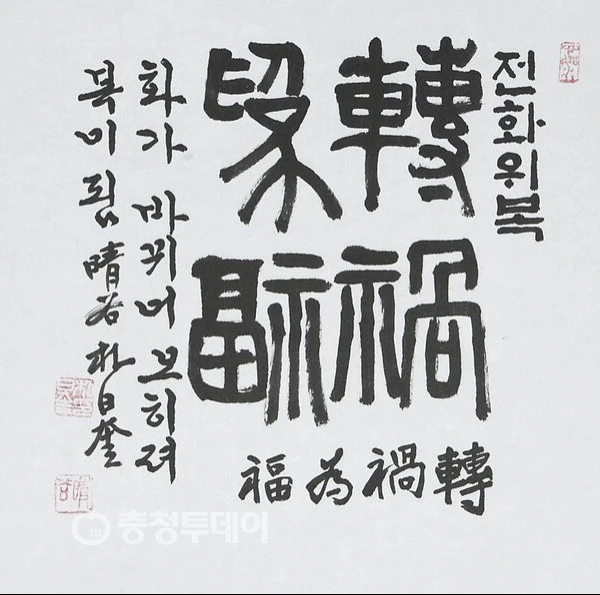 전화위복
轉禍
爲福
轉禍為福
화가 바뀌어 오히려
복이 됨 晴谷 朴日奎
충청투데이